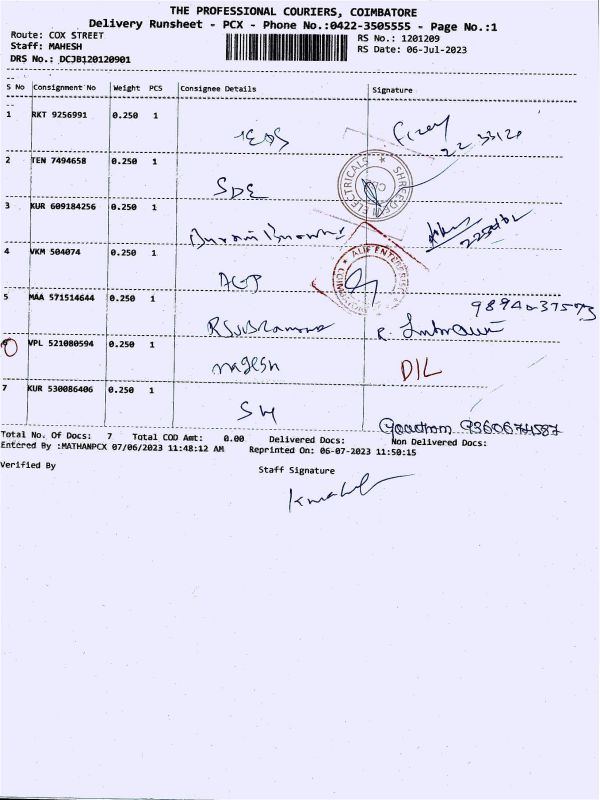 THE PROFESSIONAL COURIERS, COIMBATORE
Delivery Runsheet - PCX - Phone No.:0422-3505555 - Page No.:1
Route: COX STREET
Staff: MAHESH
DRS No.: DCJB120120901
RS No.: 1201209
RS Date: 06-Jul-2023
S No Consignment No Weight PCS Consignee Details Signature
1 RKT 9256991 0.250 1
2 TEN 7494658 0.250 1 SDE
3 KUR 609184256 0.250 1
4 VKM 504074 0.250 1 AGP
5 MAA 571514644 0.250 1 9894037573
6 VPL 521080594 0.250 1 nagesh DIL
7 KUR 530086406 0.250 1 SH
Total No. Of Docs: 7 Total COD Amt: 0.00 Delivered Docs: Non Delivered Docs:
Entered By :MATHANPCX 07/06/2023 11:48:12 AM Reprinted On: 06-07-2023 11:50:15
Verified By Staff Signature